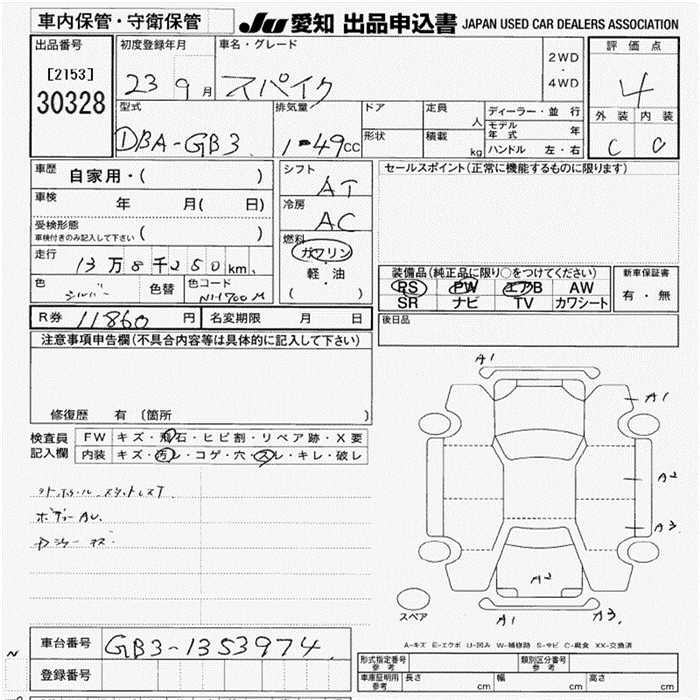 車内保管・守衛保管
JU 愛知 出品申込書 JAPAN USED CAR DEALERS ASSOCIATION
出品番号
[2153]
30328
初度登録年月
23 9月
車名・グレード
スパイク
2WD
・
4WD
評価点
4
外装 内装
C C
型式
DBA-GB3
排気量
1-49cc
ドア
形状
定員
人
積載
kg
ディーラー・並行
モデル年式 年
ハンドル 左・右
車歴
自家用・( )
車検
年 月( 日)
受検形態
車検付きのみ記入して下さい ( )
走行
13万8千250km
色
シルバー
色替
色コード
NH700M
シフト
AT
冷房
AC
燃料
ガソリン
・
軽・油
( )
セールスポイント(正常に機能するものに限ります)
装備品(純正品に限り○をつけてください)
PS PW エアB AW
SR ナビ TV カワシート
新車保証書
有・無
後日品
R券 11860円
名変期限 月 日
注意事項申告欄(不具合内容等は具体的に記入して下さい)
修復歴 有 〔箇所 〕
検査員記入欄
FW キズ・飛石・ヒビ割・リペア跡・X要
内装 キズ・汚レ・コゲ・穴・スレ・キレ・破レ
A1
A1
A2
A3
A2
A1
A3
スペア
A-キズ E-エクボ U-凹み W-補修跡 S-サビ C-腐食 XX-交換済
車台番号 GB3-1353974
登録番号
型式指定番号
参考
類別区分番号
参考
車庫証明用
参考
長さ cm 幅 cm 高さ cm